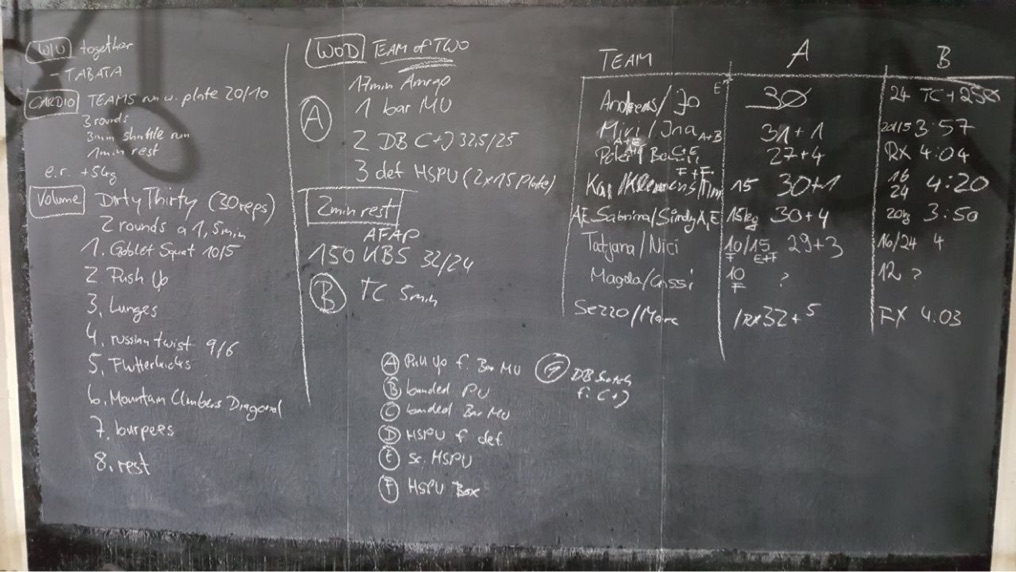 W/U together
- TABATA
CARDIO TEAMS run w. plate 20/10
3 rounds
3min shuttle run
1min rest
e.r. +54g
Volume Dirty Thirty (30 reps)
2 rounds a 1,5min
1. Goblet Squat 10/5
2 Push Up
3, Lunges
4. russian twist 9/6
5. Flutterkicks
6. Mountain Climbers Diagonal
7. burpees
8. rest
WOD TEAM of TWO
17min Amrap
A 1 bar MU
2 DB C+J 32,5/25
3 def HSPU (2x15 Plate)
2min rest
AFAP
150 KBS 32/24
B TC 5min
A Pull Up f. Bar MU
B banded PU
C banded Bar MU
D HSPU f def
E Sc. HSPU
F HSPU Box
G DB Snatch
f. C+J
TEAM A B
Andreas/Jo E 30 24 TC+250
Miri/Ina A+B 31+1 20/15 3:57
A+E C+E 27+4 RX 4:04
F+F
Kas/Klemens/Tim 15 30+1 16 24 4:20
A,E Sabrina/Sindy A,E 15kg 30+4 20kg 3:50
Tatjana/Nici 10/15 F E+F 29+3 16/24 4
Magda/Gissi 10 F ? 12 ?
Sezzo/Marc RX 32+5 RX 4.03